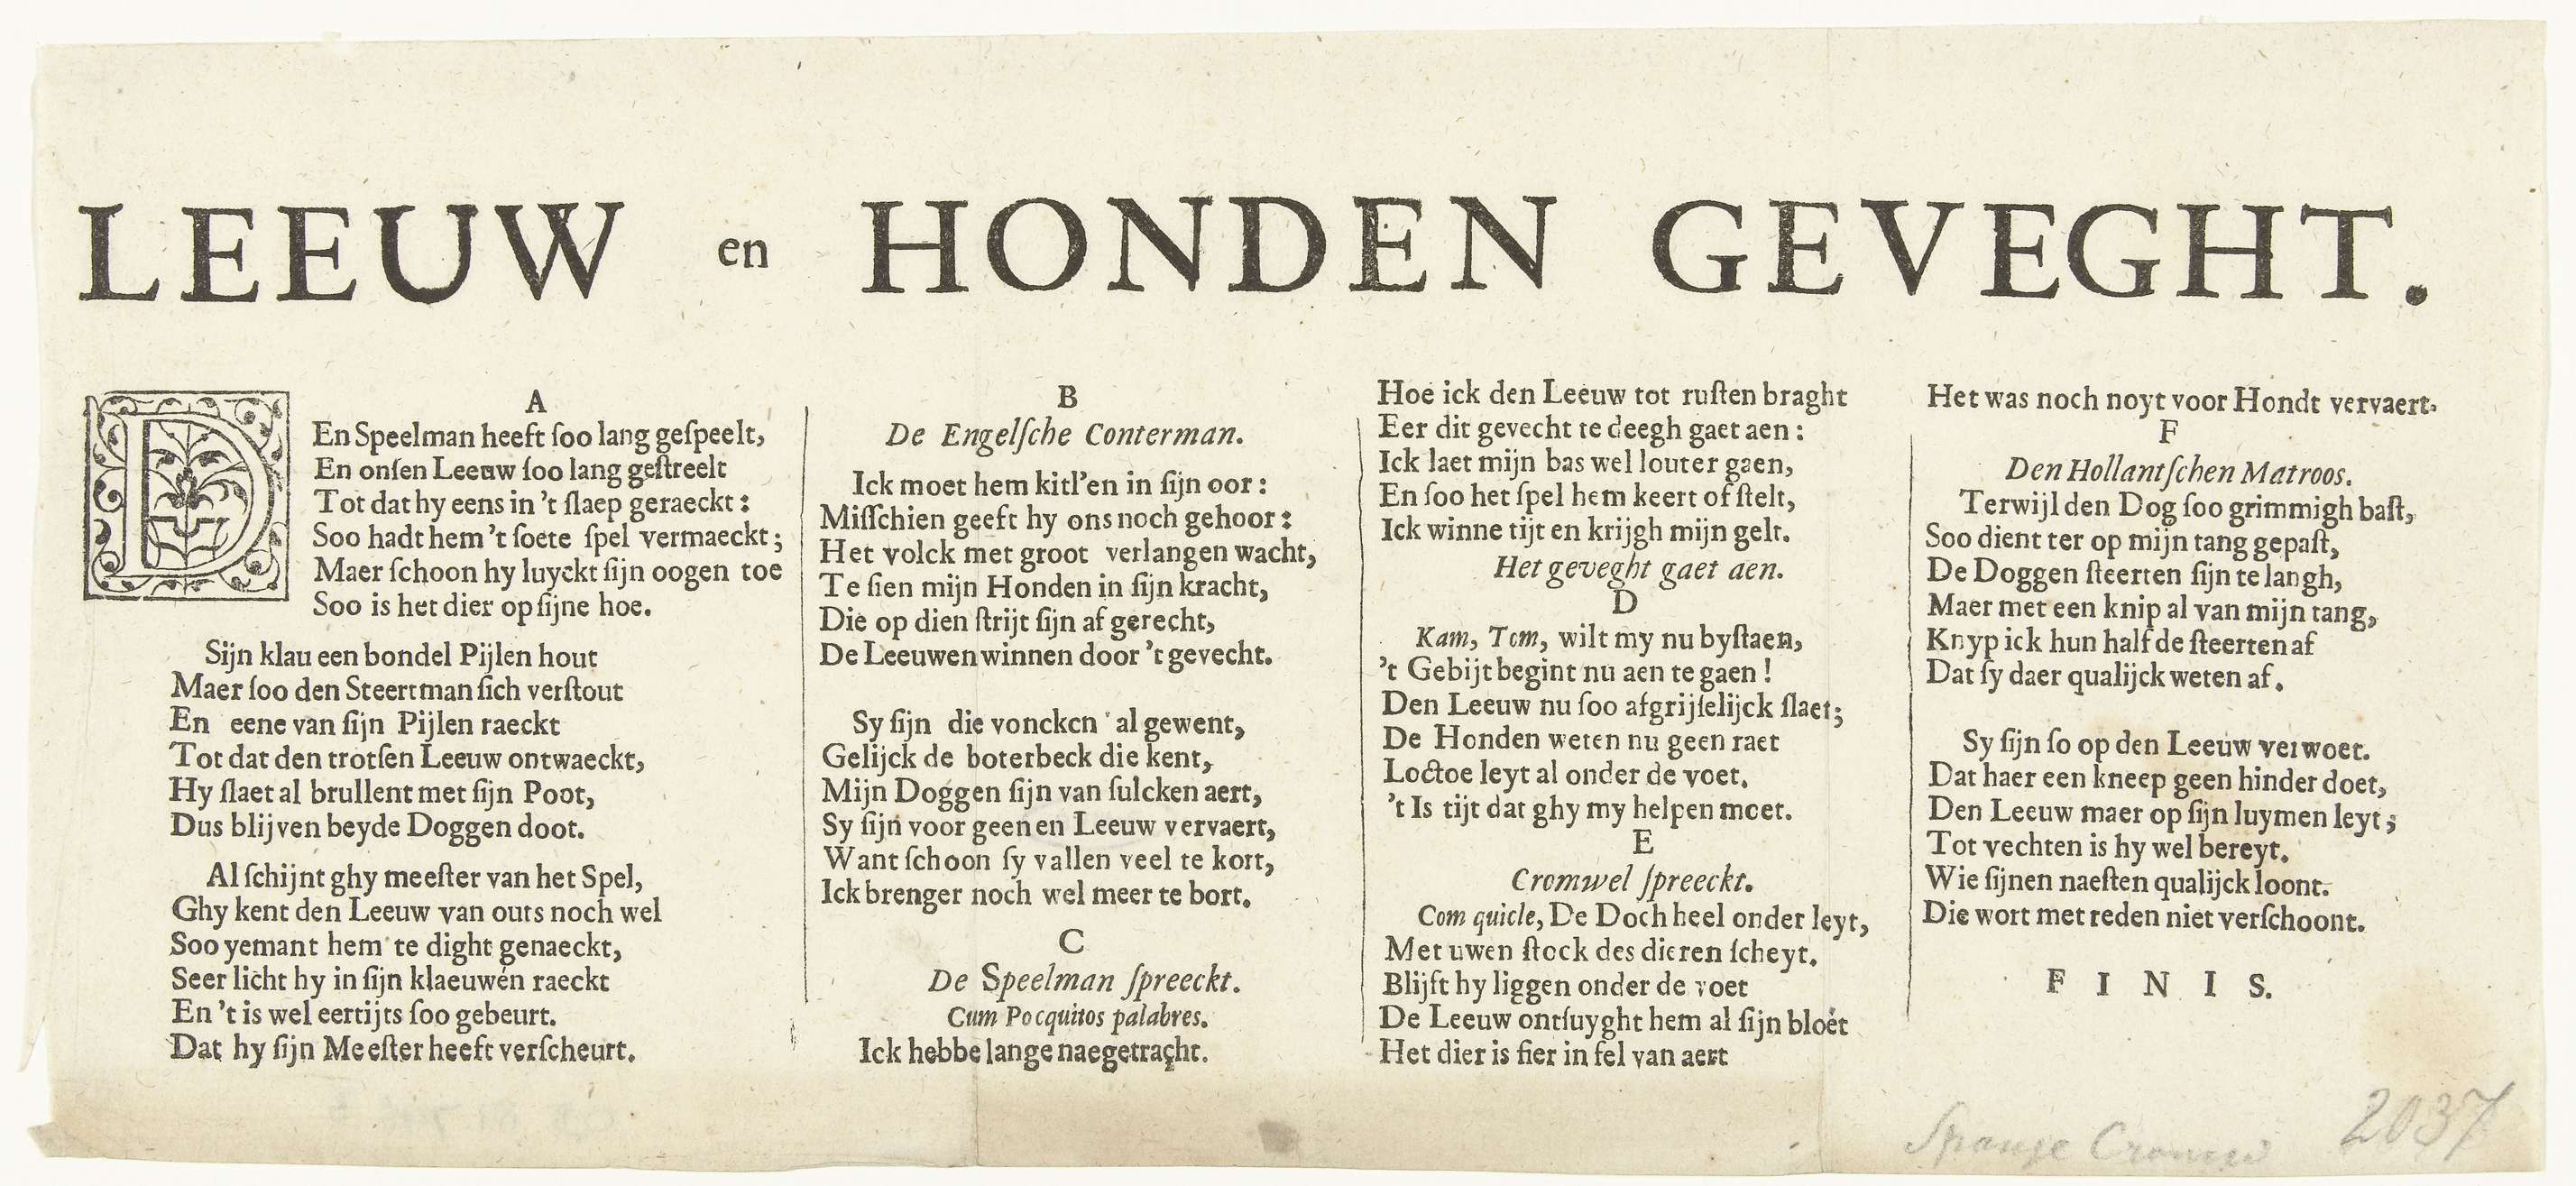 LEEUW en HONDEN GEVEGHT.
A
DEn Speelman heeft ſoo lang geſpeelt,
En onſen Leeuw ſoo lang geſtreelt
Tot dat hy eens in 't ſlaep geraeckt:
Soo hadt hem 't ſoete ſpel vermaeckt;
Maer ſchoon hy luyckt ſijn oogen toe
Soo is het dier op ſijne hoe.
Sijn klau een bondel Pijlen hout
Maer ſoo den Steertman ſich verſtout
En eene van ſijn Pijlen raeckt
Tot dat den trotſen Leeuw ontwaeckt,
Hy ſlaet al brullent met ſijn Poot,
Dus blijven beyde Doggen doot.
Al ſchijnt ghy meeſter van het Spel,
Ghy kent den Leeuw van outs noch wel
Soo yemant hem te dight genaeckt,
Seer licht hy in ſijn klaeuwen raeckt
En 't is wel eertijts ſoo gebeurt.
Dat hy ſijn Meeſter heeft verſcheurt.
B
De Engelſche Conterman.
Ick moet hem kitl'en in ſijn oor:
Miſſchien geeft hy ons noch gehoor:
Het volck met groot verlangen wacht,
Te ſien mijn Honden in ſijn kracht,
Die op dien ſtrijt ſijn af gerecht,
De Leeuwen winnen door 't gevecht.
Sy ſijn die voncken al gewent,
Gelijck de boterbeck die kent,
Mijn Doggen ſijn van ſulcken aert,
Sy ſijn voor geenen Leeuw vervaert,
Want ſchoon ſy vallen veel te kort,
Ick brenger noch wel meer te bort.
C
De Speelman ſpreeckt.
Cum Pocquitos palabres.
Ick hebbe lange naegetracht.
Hoe ick den Leeuw tot ruſten braght
Eer dit gevecht te deegh gaet aen:
Ick laet mijn bas wel louter gaen,
En ſoo het ſpel hem keert of ſtelt,
Ick winne tijt en krijgh mijn gelt.
Het geveght gaet aen.
D
Kam, Tom, wilt my nu byſtaen,
't Gebijt begint nu aen te gaen!
Den Leeuw nu ſoo afgrijſelijck ſlaet;
De Honden weten nu geen raet
Loctoe leyt al onder de voet.
't Is tijt dat ghy my helpen moet.
E
Cromwel ſpreeckt.
Com quicle, De Doch heel onder leyt,
Met uwen ſtock des dieren ſcheyt.
Blijft hy liggen onder de voet
De Leeuw ontſuyght hem al ſijn bloet
Het dier is fier in fel van aert
Het was noch noyt voor Hondt vervaert.
F
Den Hollantſchen Matroos.
Terwijl den Dog ſoo grimmigh baſt,
Soo dient ter op mijn tang gepaſt,
De Doggen ſteerten ſijn te langh,
Maer met een knip al van mijn tang,
Knyp ick hun half de ſteerten af
Dat ſy daer qualijck weten af.
Sy ſijn ſo op den Leeuw verwoet.
Dat haer een kneep geen hinder doet,
Den Leeuw maer op ſijn luymen leyt;
Tot vechten is hy wel bereyt.
Wie ſijnen naeſten qualijck loont.
Die wort met reden niet verſchoont.
FINIS.
2037
Spanje